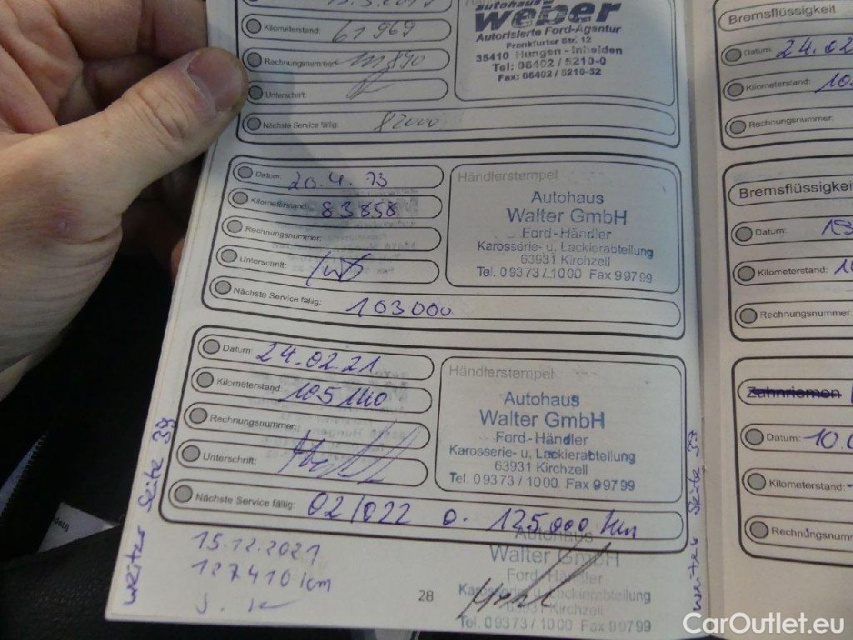 Kilometerstand: 61969
autohaus
weber
Autorisierte Ford-Agentur
Frankfurter Str. 12
35410 Hungen - Inheiden
Tel: 06402 / 5210-0
Fax: 06402 / 5210-32
Rechnungsnummer:
Unterschrift:
Nächste Service fällig: 82000
Datum: 20.4.
Kilometerstand: 83858
Rechnungsnummer:
Unterschrift:
Nächste Service fällig: 103000
Händlerstempel
Autohaus
Walter GmbH
Ford-Händler
Karosserie- u. Lackierabteilung
63931 Kirchzell
Tel. 09373/1000 Fax 99799
Datum: 24.02.21
Kilometerstand: 105140
Rechnungsnummer:
Unterschrift:
Nächste Service fällig: 02/022 o. 125.000 km
Händlerstempel
Autohaus
Walter GmbH
Ford-Händler
Karosserie- u. Lackierabteilung
63931 Kirchzell
Tel. 09373/1000 Fax 99799
weiter Seite 39
weiter Seite 39
15.12.2021
127410 km
Autohaus
Walter GmbH
Ford-Händler
Karosserie- u. Lackierabteilung
63931 Kirchzell
Tel. 09373/1000 Fax 99799
28
Bremsflüssigkeit
Datum: 24.02
Kilometerstand: 10
Rechnungsnummer:
Bremsflüssigkeit
Datum:
Kilometerstand:
Rechnungsnummer
Zahnriemen
Datum: 10.0
Kilometerstand:
Rechnungsnumm
CarOutlet.eu